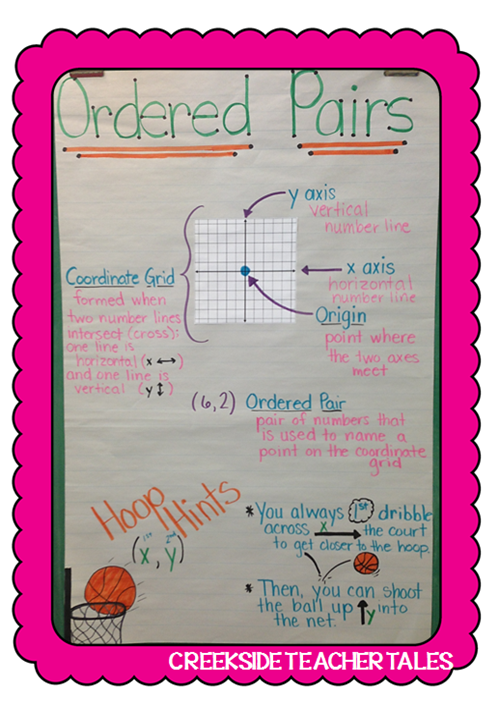 Ordered Pairs
y axis
vertical
number line
x axis
horizontal
number line
Origin
point where
the two axes
meet
Coordinate Grid
formed when
two number lines
intersect (cross):
one line is
horizontal (x ↔)
and one line is
vertical (y ↕)
(6,2) Ordered Pair
pair of numbers that
is used to name a
point on the coordinate
grid
Hoop
Hints
1st 2nd
(x, y)
* You always 1st dribble
across x → the court
to get closer to the hoop.
* Then, you can shoot
the ball up ↑y into
the net.
CREEKSIDE TEACHER TALES